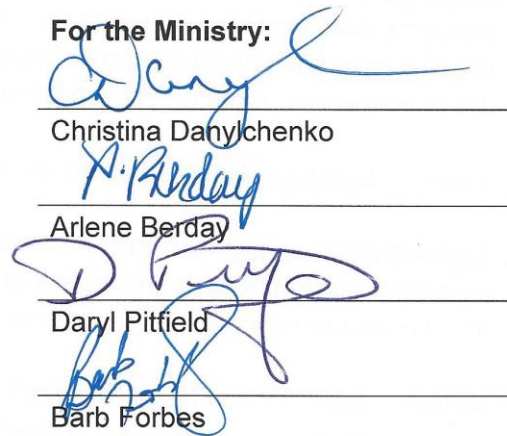 For the Ministry:
Christina Danylchenko
A. Berday
Arlene Berday
Daryl Pitfield
Barb Forbes